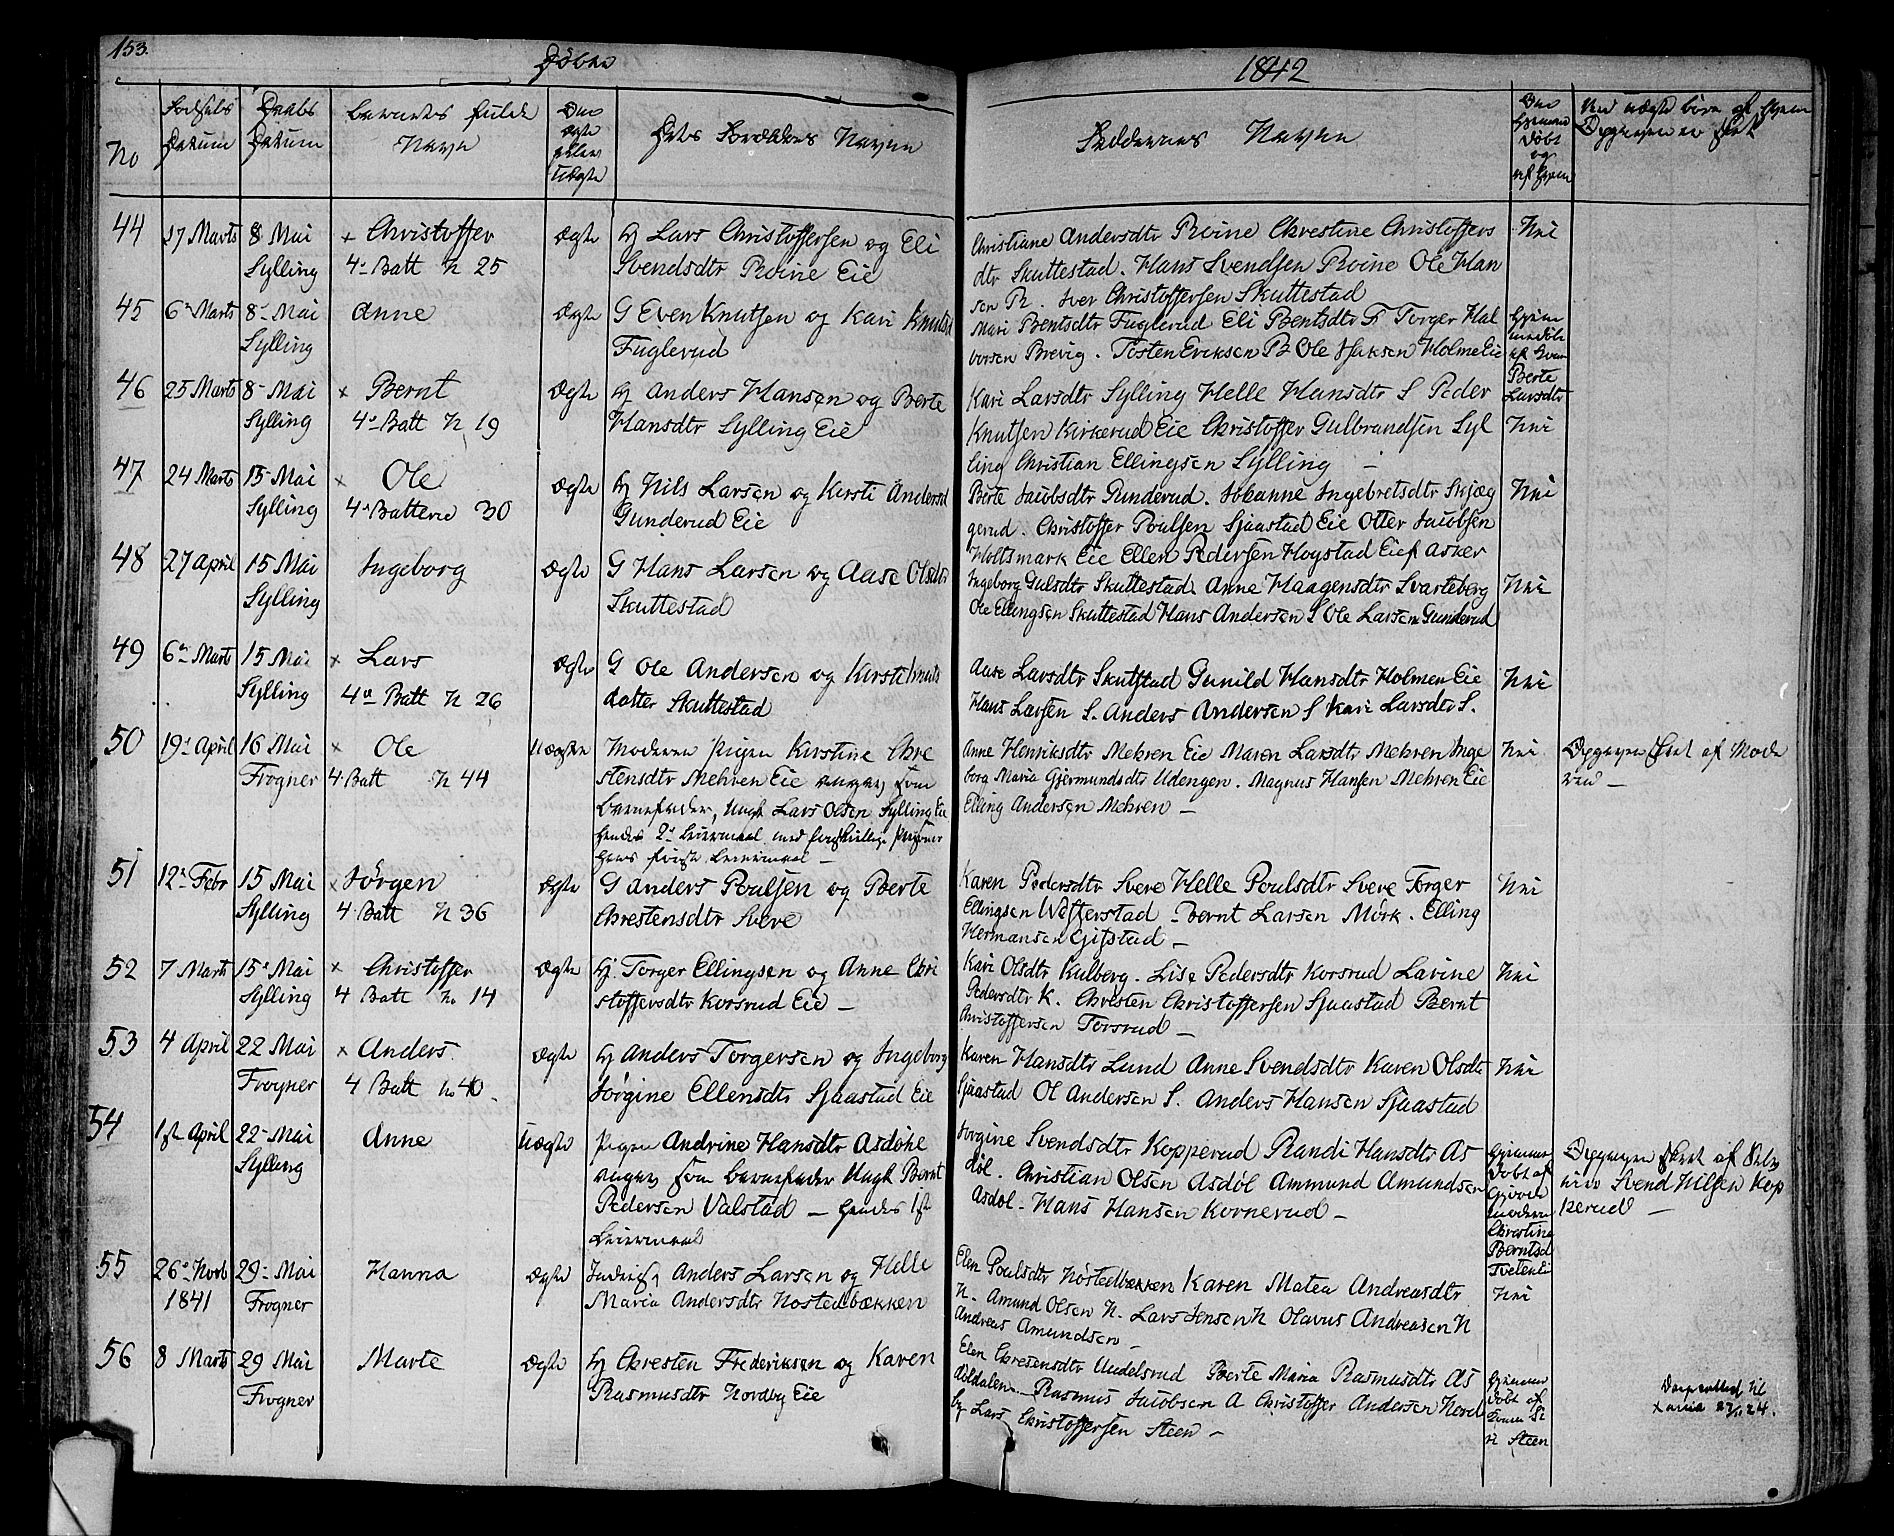 153.
Døbte
1842
No
Fødsels Datum
Daabs Datum
Barnets fulde Navn
Om ægte eller uægte
Dets Forældres Navne
Faddernes Navne
Om hjemme døbt og af hvem
Ved uægte børn af hvem Opgaven er skeet
44 17 Marts 8 Mai Sylling
× Christoffer
4. Batt N 25
Ægte
Hj Lars Christoffersen og Eli
Svendsdtr Roine Eie
Christiane Andersdtr Roine Chrestine Christoffers
dtr Skuttestad. Hans Svendsen Roine Ole Han
sen R. Iver Christoffersen Skuttestad
Nei
45 6 Marts 8 Mai Sylling
Anne
Ægte
G Even Knutsen og Kari Knutsd
Fuglerud
Mari Bentsdtr Fuglerud Eli Bentsdtr F Torger Hal
vorsen Brevig. Tosten Eriksen B Ole Isaksen Holme Eie
Hjemmedøbt af Berte Larsdtr
46 25 Marts 8 Mai Sylling
× Bernt
4. Batt N 19
Ægte
Hj Anders Hansen og Berte
Hansdtr Sylling Eie
Kari Larsdtr Sylling Helle Hansdtr S Peder
Knutsen Kirkerud Eie Christoffer Gulbrandsen Syl
ling Christian Ellingsen Sylling
Nei
47 24 Marts 15 Mai Sylling
× Ole
4. Batteri 30
Ægte
Hj Nils Larsen og Kirsti Andersd
Gunderud Eie
Berte Jacobsdtr Gunderud. Johanne Ingebretsdtr Skjæg
gerud. Christoffer Poulsen Sjaastad Eie Otter Jacobsen
Holtsmark Eie Ellen Pedersen Hogstad Eie f Asker
Nei
48 27 April 15 Mai Sylling
Ingeborg
Ægte
G Hans Larsen og Aase Olsdtr
Skuttestad
Ingeborg Gulsdtr Skuttestad Anne Haagensdtr Svarteberg
Ole Ellingsen Skuttestad Hans Andersen S Ole Larsen Gunderud
Nei
49 6 Marts 15 Mai Sylling
× Lars
4 Batt N 26
Ægte
G Ole Andersen og Kirsti Knuts
datter Skuttestad
Aase Larsdtr Skutstad Gunild Hansdtr Holmen Eie
Hans Larsen S. Anders Andersen S Kari Larsdtr S.
Nei
50 19 April 16 Mai Frogner
× Ole
4. Batt N 44
Uægte
Moderen Pigen Kirstine Chre
stensdtr Mehren Eie angav som
Barnefader, Ungk Lars Olsen Sylling Eie
hendes 2. Leiermaal med forskjellige Personer
hans første Leiermaal
Anne Henriksdtr Mehren Eie Maren Larsdtr Mehren Inge
borg Maria Gjermundsdtr Udengen. Magnus Hansen Mehren Eie
Elling Andersen Mehren
Nei
Opgaven skeet af Mode
ren
51 12 Febr 15 Mai Sylling
× Jörgen
4. Batt N 36
Ægte
G Anders Poulsen og Berte
Chrestensdtr Sveve
Karen Pedersdtr Sveve Helle Poulsdtr Sveve Torger
Ellingsen Wefferstad Bernt Larsen Mörk. Elling
Hermansen Gifstad
Nei
52 7 Marts 15 Mai Sylling
× Christoffer
4 Batt No 14
Ægte
Hj. Torger Ellingsen og Anne Chri
stoffersdtr Korsrud Eie
Kari Olsdtr Kulberg. Lise Pedersdtr Korsrud Lavine
Pedersdtr K. Chresten Christoffersen Sjaastad Bernt
Christoffersen Torsrud
Nei
53 4 April 22 Mai Frogner
× Anders
4 Batt No 40
Ægte
Hj Anders Torgersen og Ingeborg
Jörgine Ellensdtr Sjaastad Eie
Karen Hansdtr Lund Anne Svendsdtr Karen Olsdtr
Sjaastad Ol Andersen S. Anders Hansen Sjaastad
Nei
54 1ste April 22 Mai Sylling
Anne
Uægte
Pigen Andrine Hansdtr Asdöhl
angav som Barnefader Ungk Bernt
Pedersen Valstad hendes 1ste
Leiermaal
Jorgine Svendsdtr Kopperud Randi Hansdtr As
döl. Christian Olsen Asdöl Ammund Amundsen
Asdöl. Hans Hansen Kornerud
Hjemmedøbt af Gjordemoderen Christine Berntsd Tveten Ei
Opgaven skeet af
Svend Nilsen Kop
perud
55 26 Novb 1841 29 Mai Frogner
Hanna
Ægte
Inderst Anders Larsen og Helle
Maria Andersdtr Nostedbækken
Elen Poulsdtr Nöstedbækken Karen Matea Andreasdtr
N. Amund Olsen N. Lars Jensen N Olavus Andreasen N
Andreas Amundsen
Nei
56 8 Marts 29 Mai Frogner
Marte
Ægte
Hj Chresten Frederiksen og Karen
Rasmusdtr Nordby Eie
Elen Chrestensdtr Uudelsrud Berte Maria Rasmusdtr As
döldalen Rasmus Jacobsen A Christoffer Andersen Nord
by Lars Christoffersen Steen
Hjemmedøbt af Steen
Daapsattest til
Xania 27/11 24.